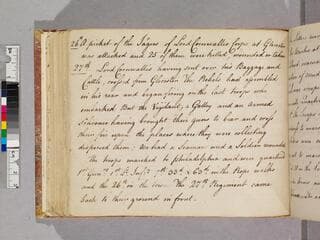 26th A picket of the Jagers of Lord Cornwallis Corps at Glauster
was attacked and 25 of them were killed wounded or taken
27th Lord Cornwallis having sent over his Baggage and
Cattle, crossed from Gloucester. The Rebels had assembled
in his rear and began firing on the last troops who
embarked. But the Vigilant, a Galley and an Armed
Schooner having brought their guns to bear and cross
their fire upon the places where they were collecting
dispersed them: We had a Seaman and a Soldier wounded.
The troops marched to Philadelphia and were quartered
33d &
with the
and the 26th in the line. The 27th Regiment came
back to their ground in front.